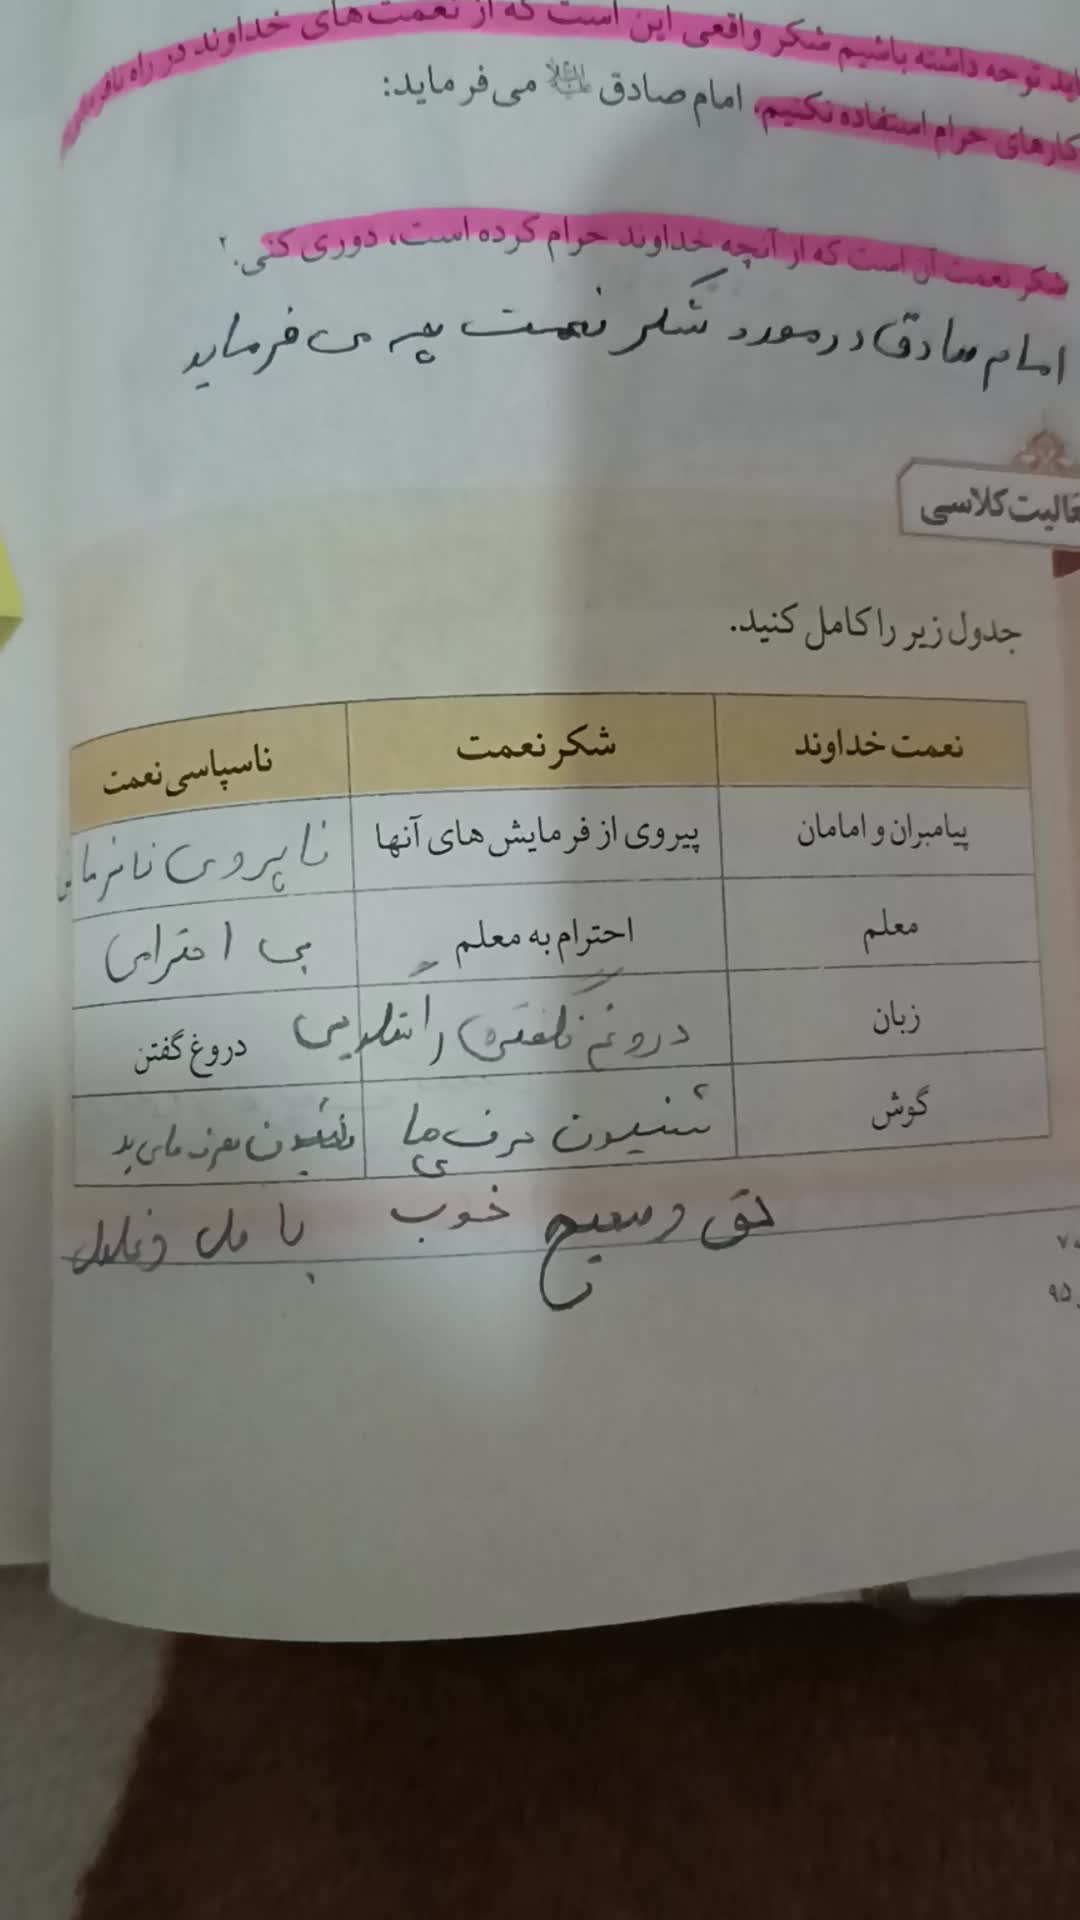 باید توجه داشته باشیم شکر واقعی این است که از نعمت‌های خداوند در راه
کارهای حرام استفاده نکنیم، امام صادق علیه‌السلام می‌فرماید:
شکر نعمت آن است که از آنچه خداوند حرام کرده است، دوری کنی.۲
امام صادق در مورد شکر نعمت چه می فرماید
فعالیت کلاسی
جدول زیر را کامل کنید.
نعمت خداوند شکر نعمت ناسپاسی نعمت
پیامبران و امامان پیروی از فرمایش‌های آنها نا پیروی نافرمانی
معلم احترام به معلم بی احترامی
زبان دروغ نگفتن راستگویی دروغ گفتن
گوش شنیدن حرف های شنیدن حرف های بد
حق و صحیح خوب باطل و غلط
۷
۹۵